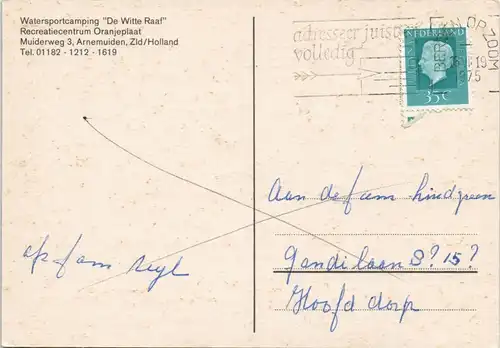 Watersportcamping "De Witte Raaf"
Recreatiecentrum Oranjeplaat
Muiderweg 3, Arnemuiden, Zld/Holland
Tel. 01182 - 1212 - 1619
adresseer juist
volledig
NEDERLAND
35c
Aan de fam
Gandilaan 8? 15?
Hoofddorp
fam